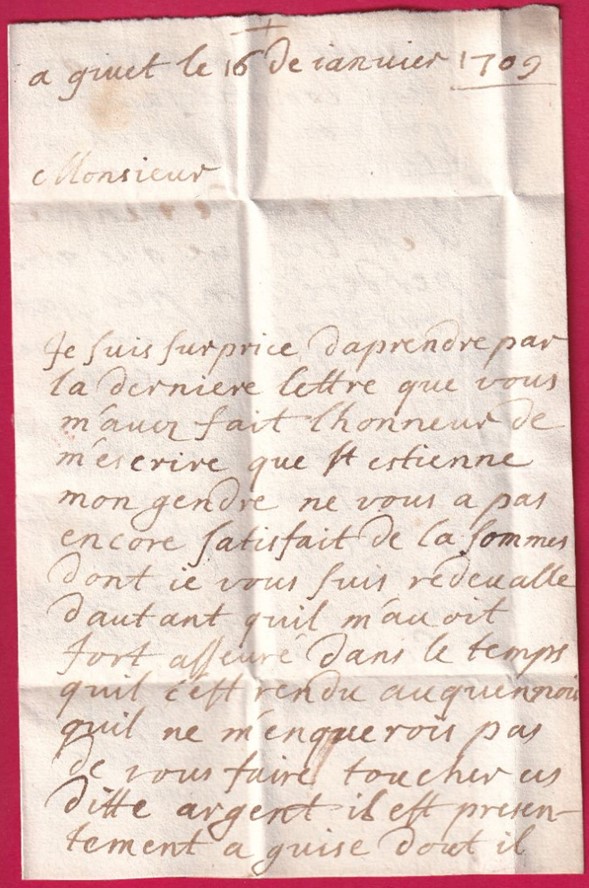 a givet le 16 de ianvier 1709
Monsieur
Je suis surprice daprendre par
la derniere lettre que vous
m'auez fait lhonneur de
m'escrire que st estienne
mon gendre ne vous a pas
encore satisfait de la sommes
dont ie vous suis redeualle
dautant quil m'auoit
fort asseuré dans le temps
quil c'est rendu au quennois
quil ne m'enquerois pas
de vous faire toucher
ditte argent il est presen-
tement a guise dout il